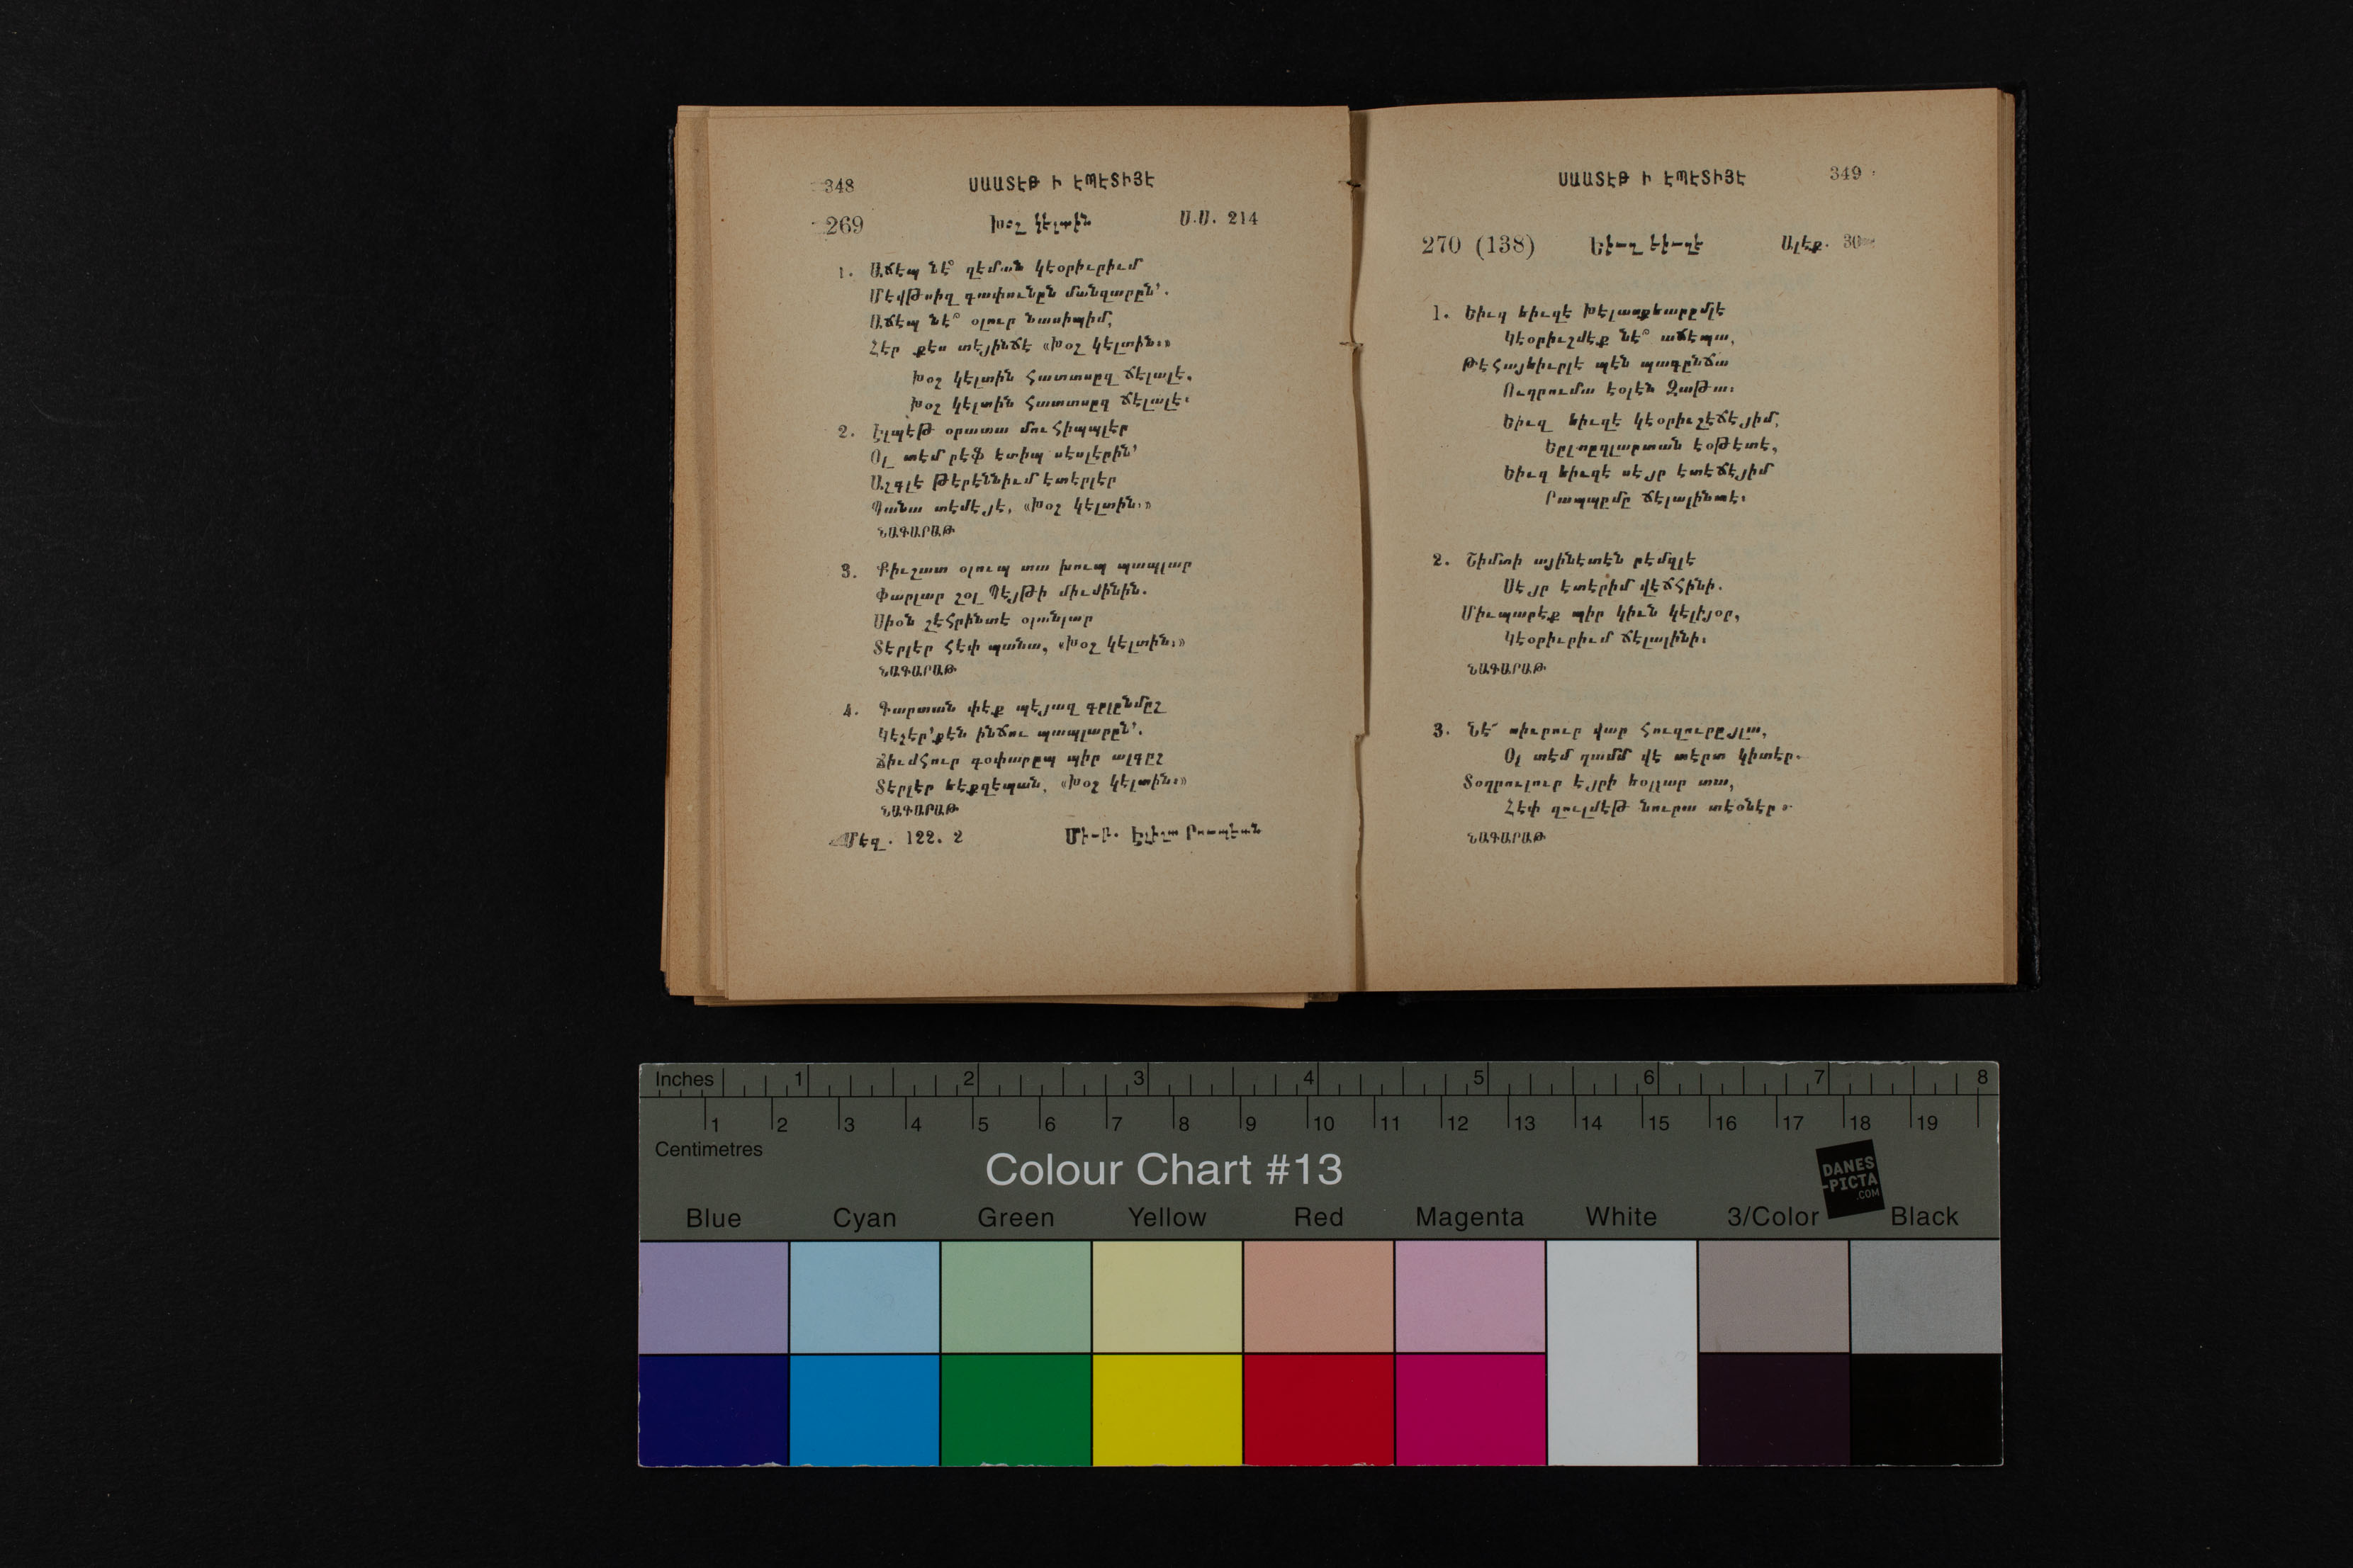 348 ՍԱԱՏԷԹ Ի ԷՊԷՏԻՅԷ
269 Խօշ կէլտին Ս.Ս. 214
1. Աճէպ նէ՞ զէման կէօրիւրիւմ
Մէվթսիզ գափունըն մանզարըն՚.
Աճէպ նէ՞ օլուր նասիպիմ,
Հէր քէս տէյինճէ «Խօշ կէլտին։»
Խօշ կէլտին Հատտսըզ ճէլալէ,
Խօշ կէլտին Հատտսըզ ճէլալէ։
2. Էլպէթ օրատա մուհիպպլեր
Օլ տէմ րէֆ ետիպ սէսլերին՚
Աշգլէ թերէննիւմ էտերլեր
Պանա տէմէյէ, «Խօշ կէլտին։»
ՆԱԳԱՐԱԹ
3. Քիւշատ օլուպ տա խուպ պապլար
Փարլար շօլ Պէյթի միւմինին.
Սիօն շէհրինտէ օլանլար
Տէրլէր հէփ պանա, «Խօշ կէլտին։»
ՆԱԳԱՐԱԹ
4. Գարտան փէք պէյազ գըլընմըշ
Կէչեր՚քէն ինճու պապլարըն՚.
Ճիւմհուր գօփարըպ պիր ալգըշ
Տէրլեր եէքզէպան, «Խօշ կէլտին։»
ՆԱԳԱՐԱԹ
Մէզ. 122. 2 Միւր. Էլիշա
ՍԱԱՏԷԹ Ի ԷՊԷՏԻՅԷ 349
270 (138) Եիւզ եիւզէ Ալէք. 30
1. Եիւզ եիւզէ Խէլասքեարըմլէ
Կէօրիւշմէք նէ՞ աճէպա,
Թէհայեիւրլէ պէն պագընճա
Ուղրումա էօլէն Զաթա։
Եիւզ եիւզէ կէօրիւշէճէյիմ,
Եըլտըզլարտան էօթէտէ,
Եիւզ եիւզէ սէյր ետէճէյիմ
Րապպըմը ճէլալինտէ։
2. Շիմտի այինէտէն րէմզլէ
Սէյր ետէրիմ վէճհինի.
Միւպարէք պիր կիւն կէլիյօր,
Կէօրիւրիւմ ճէլալինի։
ՆԱԳԱՐԱԹ
3. Նէ՜ սիւրուր վար հուզուրըյլա,
Օլ տէմ ղամմ վէ տէրտ կիտէր.
Տօղրուլուր էյրի եօլլար տա,
Հէփ զուլմէթ նուրա տէօնէր։
ՆԱԳԱՐԱԹ
Inches 1 2 3 4 5 6 7 8
1 2 3 4 5 6 7 8 9 10 11 12 13 14 15 16 17 18 19
Centimetres
Colour Chart #13
DANES
-PICTA
.COM
Blue Cyan Green Yellow Red Magenta White 3/Color Black